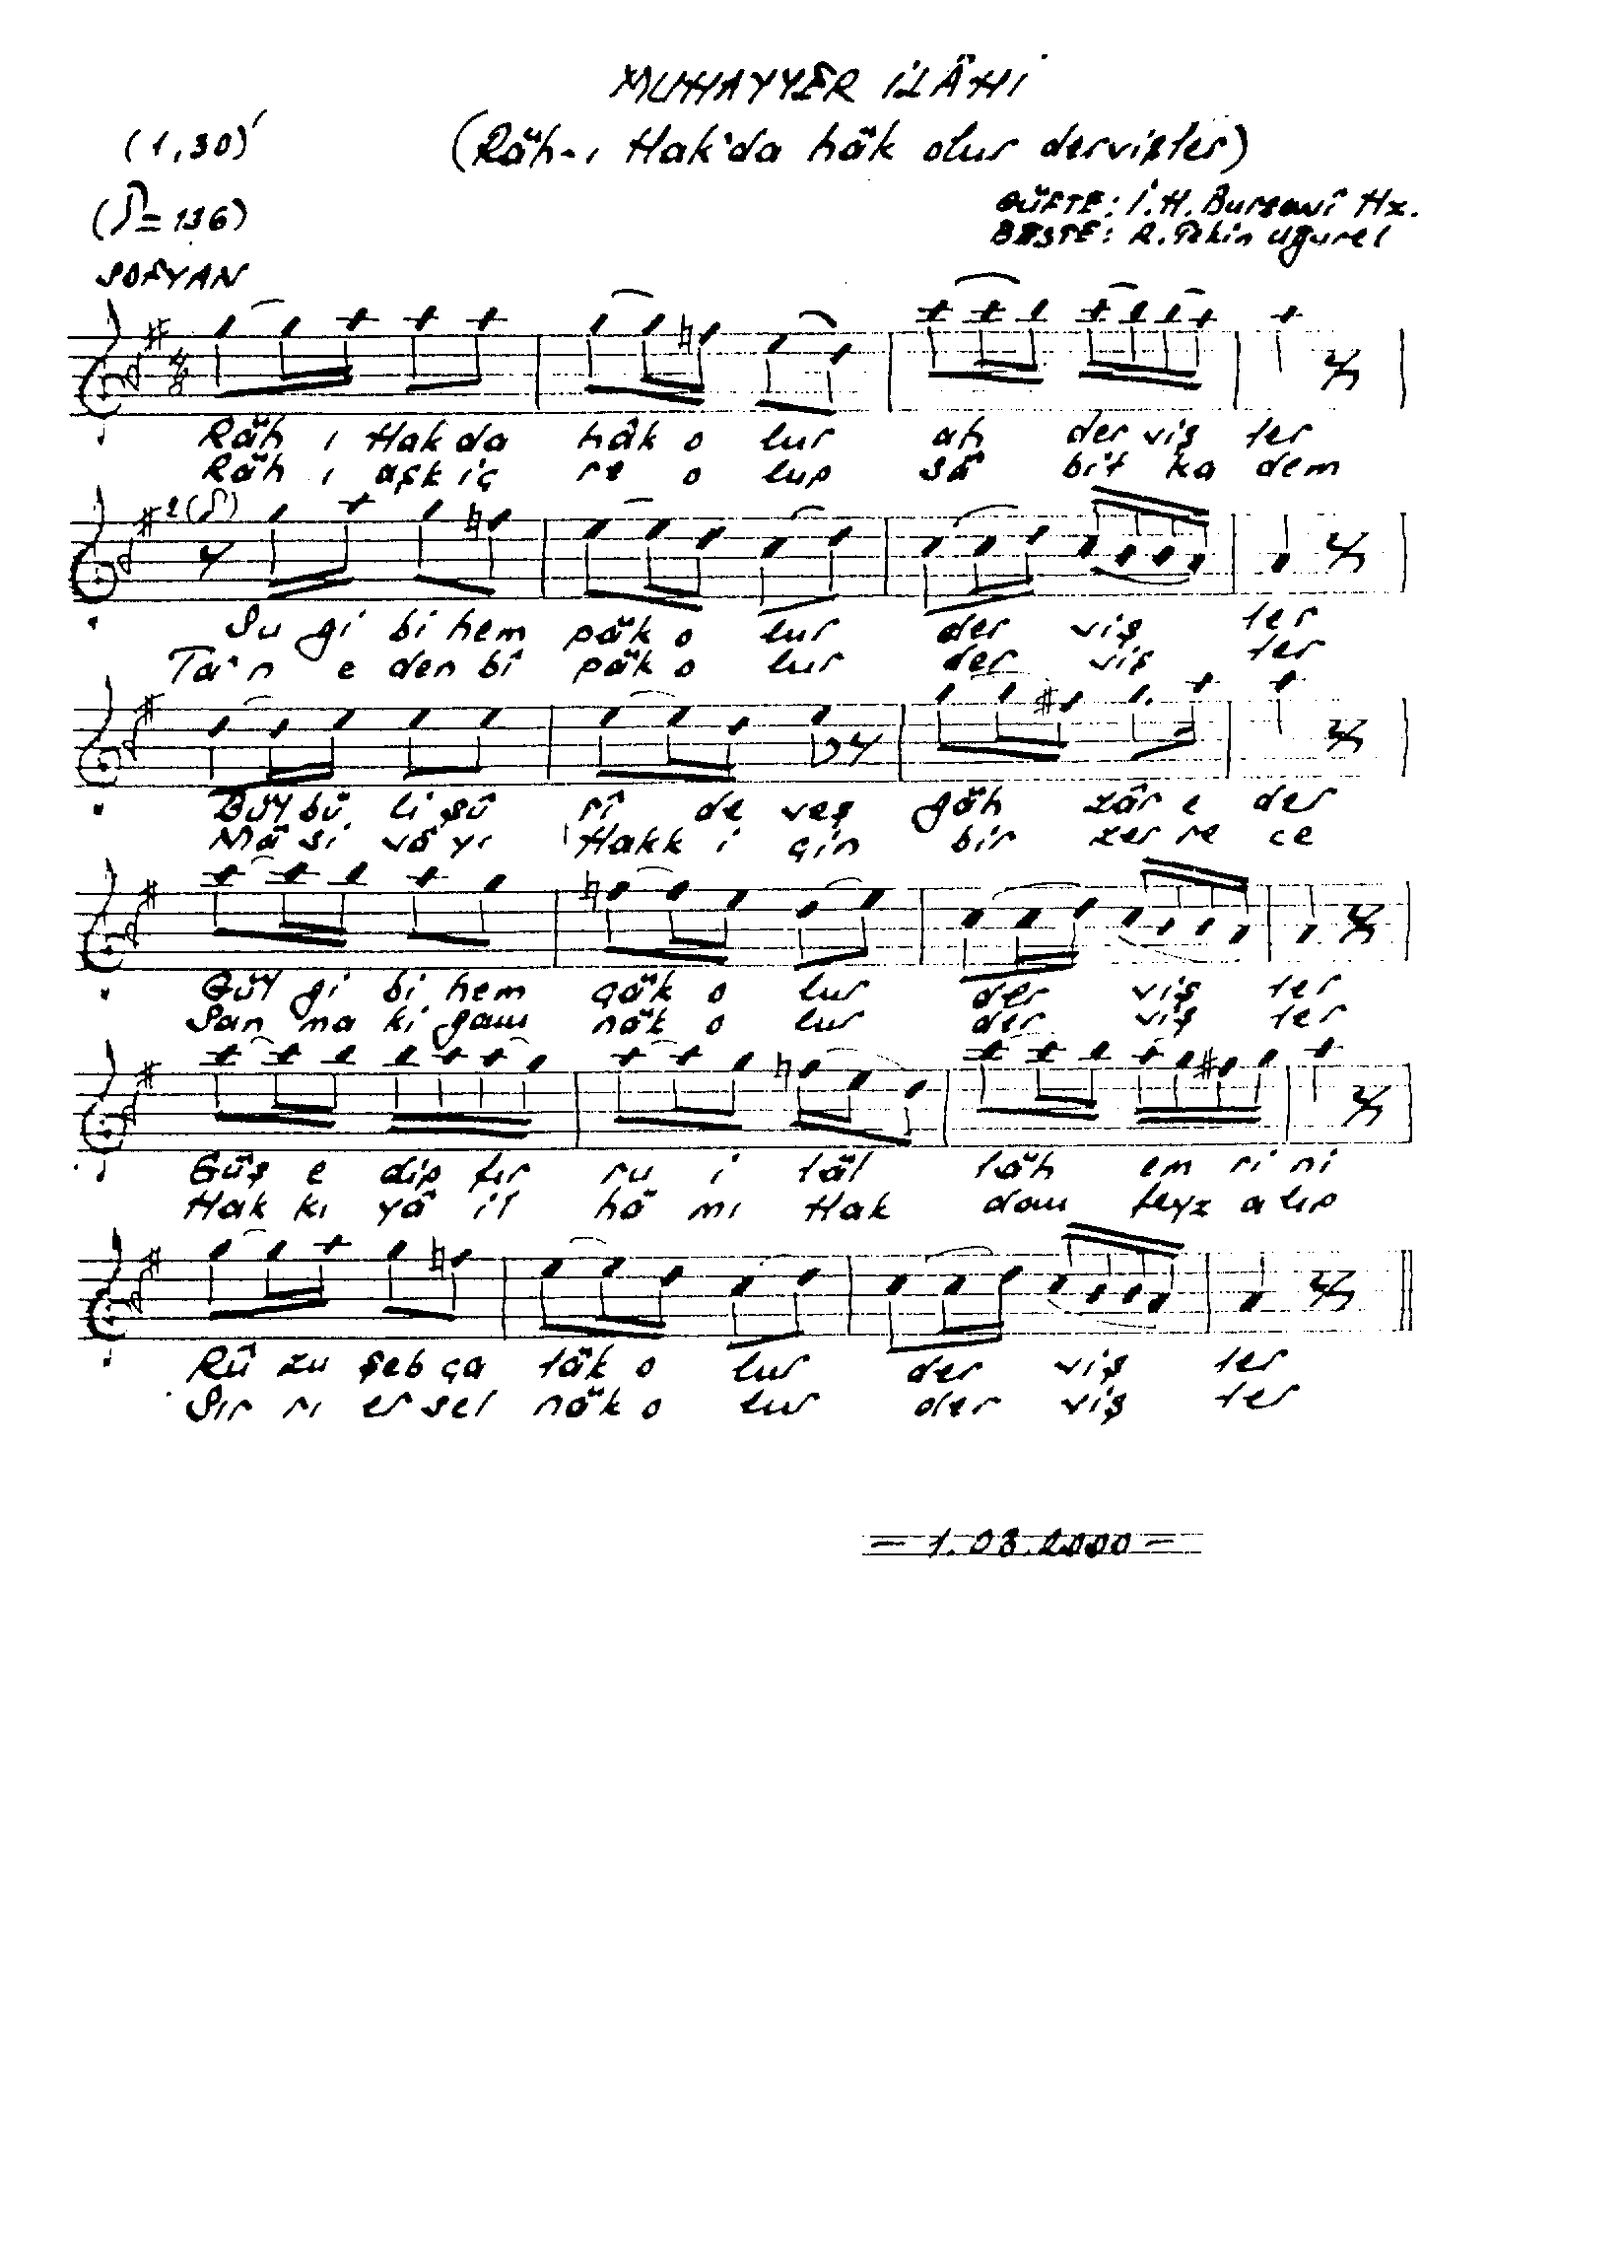 MUHAYYER İLÂHİ
(1,30)'
(Râh-ı Hak'da hâk olur dervişler)
(♪=136)
GÜFTE: İ.H. Bursavî Hz.
BESTE: R. Tekin Uğurel
SOFYAN
4/8
Râh ı Hak da hâk o lur ah der viş ler
Râh ı aşk iç re o lup sâ bit ka dem
2(♪)
Su gi bi hem pâk o lur der viş ler
Ta'n e den bî pâk o lur der viş ler
Bül bü li şû rî de veş gâh zâr e der
Mâ si vâ yı Hakk i çin bir zer re ce
Gül gi bi hem çâk o lur der viş ler
San ma ki gam nâk o lur der viş ler
Gûş e dip fır ru i lâl lâh em ri ni
Hak kı yâ il hâ mı Hak dan feyz a lıp
Rû zu şeb ça lâk o lur der viş ler
Sır rı er sel nâk o lur der viş ler
= 1.03.2000 =